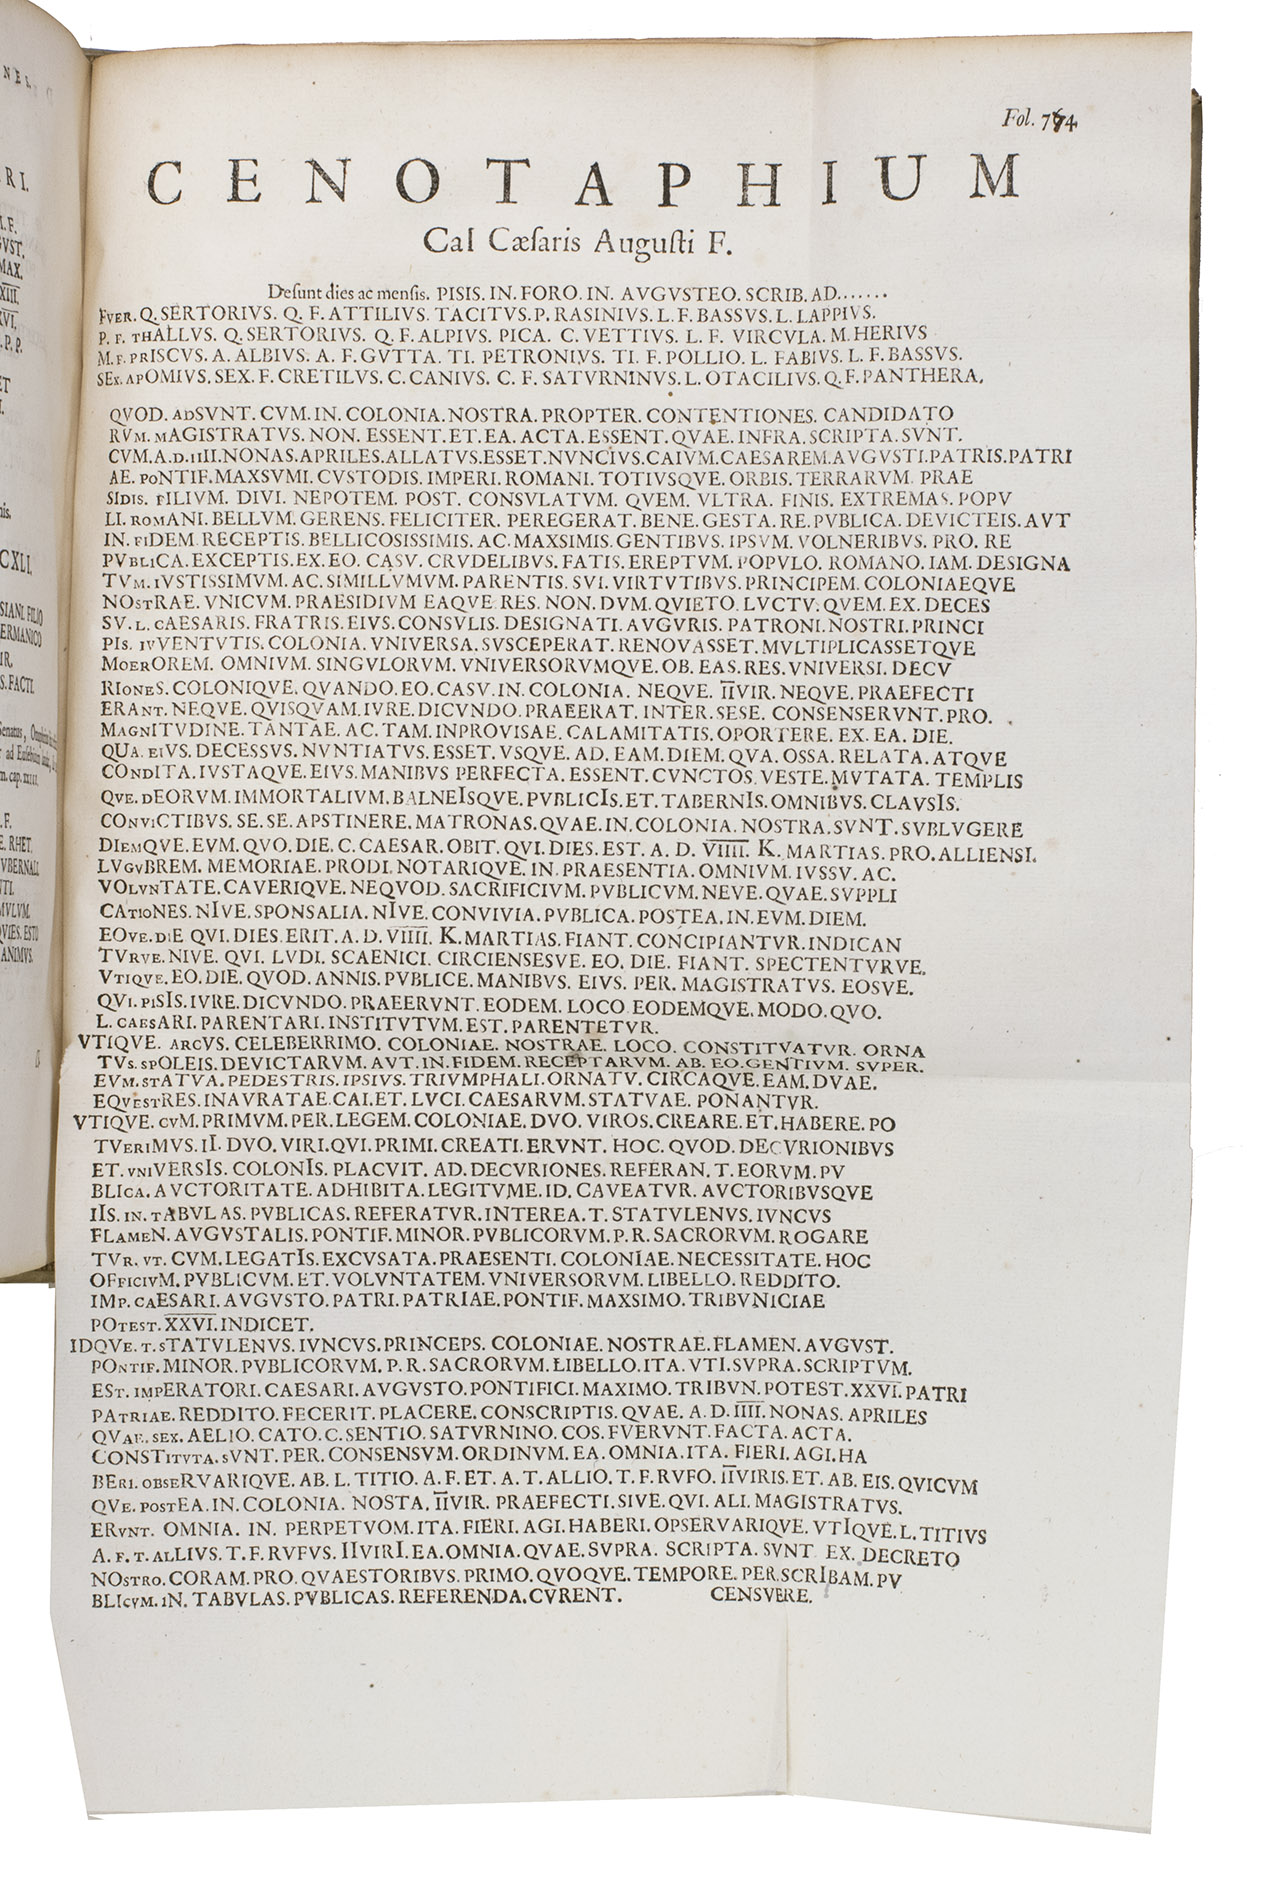 Fol. 774
CENOTAPHIUM
CaI Cæsaris Augusti F.
Desunt dies ac mensis. PISIS. IN. FORO. IN. AVGVSTEO. SCRIB. AD.......
FVER. Q. SERTORIVS. Q. F. ATTILIVS. TACITVS. P. RASINIVS. L. F. BASSVS. L. LAPPIVS.
P. F. THALLVS. Q. SERTORIVS. Q. F. ALPIVS. PICA. C. VETTIVS. L. F. VIRCVLA. M. HERIVS
M. F. PRISCVS. A. ALBIVS. A. F. GVTTA. TI. PETRONIVS. TI. F. POLLIO. L. FABIVS. L. F. BASSVS.
SEX. APOMIVS. SEX. F. CRETILVS. C. CANIVS. C. F. SATVRNINVS. L. OTACILIVS. Q. F. PANTHERA,
QVOD. ADSVNT. CVM. IN. COLONIA. NOSTRA. PROPTER. CONTENTIONES. CANDIDATO
RVM. MAGISTRATVS. NON. ESSENT. ET. EA. ACTA. ESSENT. QVAE. INFRA. SCRIPTA. SVNT.
CVM. A. D. IIII. NONAS. APRILES. ALLATVS. ESSET. NVNCIVS. CAIVM. CAESAREM. AVGVSTI. PATRIS. PATRI
AE. PONTIF. MAXSVMI. CVSTODIS. IMPERI. ROMANI. TOTIVSQVE. ORBIS. TERRARVM. PRAE
SIDIS. FILIVM. DIVI. NEPOTEM. POST. CONSVLATVM. QVEM. VLTRA. FINIS. EXTREMAS. POPV
LI. ROMANI. BELLVM. GERENS. FELICITER. PEREGERAT. BENE. GESTA. RE. PVBLICA. DEVICTEIS. AVT
IN. FIDEM. RECEPTIS. BELLICOSISSIMIS. AC. MAXSIMIS. GENTIBVS. IPSVM. VOLNERIBVS. PRO. RE
PVBLICA. EXCEPTIS. EX. EO. CASV. CRVDELIBVS. FATIS. EREPTVM. POPVLO. ROMANO. IAM. DESIGNA
TVM. IVSTISSIMVM. AC. SIMILLVMVM. PARENTIS. SVI. VIRTVTIBVS. PRINCIPEM. COLONIAEQVE
NOSTRAE. VNICVM. PRAESIDIVM EAQVE. RES. NON. DVM. QVIETO. LVCTV. QVEM. EX. DECES
SV. L. CAESARIS. FRATRIS. EIVS. CONSVLIS. DESIGNATI. AVGVRIS. PATRONI. NOSTRI. PRINCI
PIS. IVVENTVTIS. COLONIA. VNIVERSA. SVSCEPERAT. RENOVASSET. MVLTIPLICASSETQVE
MOEROREM. OMNIVM. SINGVLORVM. VNIVERSORVMQVE. OB. EAS. RES. VNIVERSI. DECV
RIONES. COLONIQVE. QVANDO. EO. CASV. IN. COLONIA. NEQVE. IIVIR. NEQVE. PRAEFECTI
ERANT. NEQVE. QVISQVAM. IVRE. DICVNDO. PRAEERAT. INTER. SESE. CONSENSERVNT. PRO.
MAGNITVDINE. TANTAE. AC. TAM. INPROVISAE. CALAMITATIS. OPORTERE. EX. EA. DIE.
QUA. EIVS. DECESSVS. NVNTIATVS. ESSET. VSQVE. AD. EAM. DIEM. QVA. OSSA. RELATA. ATQVE
CONDITA. IVSTAQVE. EIVS. MANIBVS PERFECTA. ESSENT. CVNCTOS. VESTE. MVTATA. TEMPLIS
QVE. DEORVM. IMMORTALIVM. BALNEISQVE. PVBLICIS. ET. TABERNIS. OMNIBVS. CLAVSIS.
CONVICTIBVS. SE. SE. APSTINERE. MATRONAS. QVAE. IN. COLONIA. NOSTRA. SVNT. SVBLVGERE
DIEMQVE. EVM. QVO. DIE. C. CAESAR. OBIT. QVI. DIES. EST. A. D. VIIII. K. MARTIAS. PRO. ALLIENSI.
LVGVBREM. MEMORIAE. PRODI. NOTARIQVE. IN. PRAESENTIA. OMNIVM. IVSSV. AC.
VOLVNTATE. CAVERIQVE. NEQVOD. SACRIFICIVM. PVBLICVM. NEVE. QVAE. SVPPLI
CATIONES. NIVE. SPONSALIA. NIVE. CONVIVIA. PVBLICA. POSTEA. IN. EVM. DIEM.
EOVE. DIE QVI. DIES. ERIT. A. D. VIIII. K. MARTIAS. FIANT. CONCIPIANTVR. INDICAN
TVRVE. NIVE. QVI. LVDI. SCAENICI. CIRCIENSESVE. EO. DIE. FIANT. SPECTENTVRVE.
VTIQVE. EO. DIE. QVOD. ANNIS. PVBLICE. MANIBVS. EIVS. PER. MAGISTRATVS. EOSVE.
QVI. PISIS. IVRE. DICVNDO. PRAEERVNT. EODEM. LOCO EODEMQVE. MODO. QVO.
L. CAESARI. PARENTARI. INSTITVTVM. EST. PARENTETVR.
VTIQVE. ARCVS. CELEBERRIMO. COLONIAE. NOSTRAE. LOCO. CONSTITVATVR. ORNA
TVS. SPOLEIS. DEVICTARVM. AVT. IN. FIDEM. RECEPTARVM. AB. EO. GENTIVM. SVPER.
EVM. STATVA. PEDESTRIS. IPSIVS. TRIVMPHALI. ORNATV. CIRCAQVE. EAM. DVAE.
EQVESTRES. INAVRATAE. CAI. ET. LVCI. CAESARVM. STATVAE. PONANTVR.
VTIQVE. CVM. PRIMVM. PER. LEGEM. COLONIAE. DVO. VIROS. CREARE. ET. HABERE. PO
TVERIMVS. II. DVO. VIRI. QVI. PRIMI. CREATI. ERVNT. HOC. QVOD. DECVRIONIBVS
ET. VNIVERSIS. COLONIS. PLACVIT. AD. DECVRIONES. REFERAN. T. EORVM. PV
BLICA. AVCTORITATE. ADHIBITA. LEGITVME. ID. CAVEATVR. AVCTORIBVSQVE
IIS. IN. TABVLAS. PVBLICAS. REFERATVR. INTEREA. T. STATVLENVS. IVNCVS
FLAMEN. AVGVSTALIS. PONTIF. MINOR. PVBLICORVM. P. R. SACRORVM. ROGARE
TVR. VT. CVM. LEGATIS. EXCVSATA. PRAESENTI. COLONIAE. NECESSITATE. HOC
OFFICIVM. PVBLICVM. ET. VOLVNTATEM. VNIVERSORVM. LIBELLO. REDDITO.
IMP. CAESARI. AVGVSTO. PATRI. PATRIAE. PONTIF. MAXSIMO. TRIBVNICIAE
POTEST. XXVI. INDICET.
IDQVE. T. STATVLENVS. IVNCVS. PRINCEPS. COLONIAE. NOSTRAE. FLAMEN. AVGVST.
PONTIF. MINOR. PVBLICORVM. P. R. SACRORVM. LIBELLO. ITA. VTI. SVPRA. SCRIPTVM.
EST. IMPERATORI. CAESARI. AVGVSTO. PONTIFICI. MAXIMO. TRIBVN. POTEST. XXVI. PATRI
PATRIAE. REDDITO. FECERIT. PLACERE. CONSCRIPTIS. QVAE. A. D. IIII. NONAS. APRILES
QVAE. SEX. AELIO. CATO. C. SENTIO. SATVRNINO. COS. FVERVNT. FACTA. ACTA.
CONSTITVTA. SVNT. PER. CONSENSVM. ORDINVM. EA. OMNIA. ITA. FIERI. AGI. HA
BERI. OBSERVARIQVE. AB. L. TITIO. A. F. ET. A. T. ALLIO. T. F. RVFO. IIVIRIS. ET. AB. EIS. QVICVM
QVE. POSTEA. IN. COLONIA. NOSTA. IIVIR. PRAEFECTI. SIVE. QVI. ALI. MAGISTRATVS.
ERVNT. OMNIA. IN. PERPETVOM. ITA. FIERI. AGI. HABERI. OPSERVARIQVE. VTIQVE. L. TITIVS
A. F. T. ALLIVS. T. F. RVFVS. IIVIRI. EA. OMNIA. QVAE. SVPRA. SCRIPTA. SVNT EX. DECRETO
NOSTRO. CORAM. PRO. QVAESTORIBVS. PRIMO. QVOQVE. TEMPORE. PER. SCRIBAM. PV
BLICVM. IN. TABVLAS. PVBLICAS. REFERENDA. CVRENT. CENSVERE.